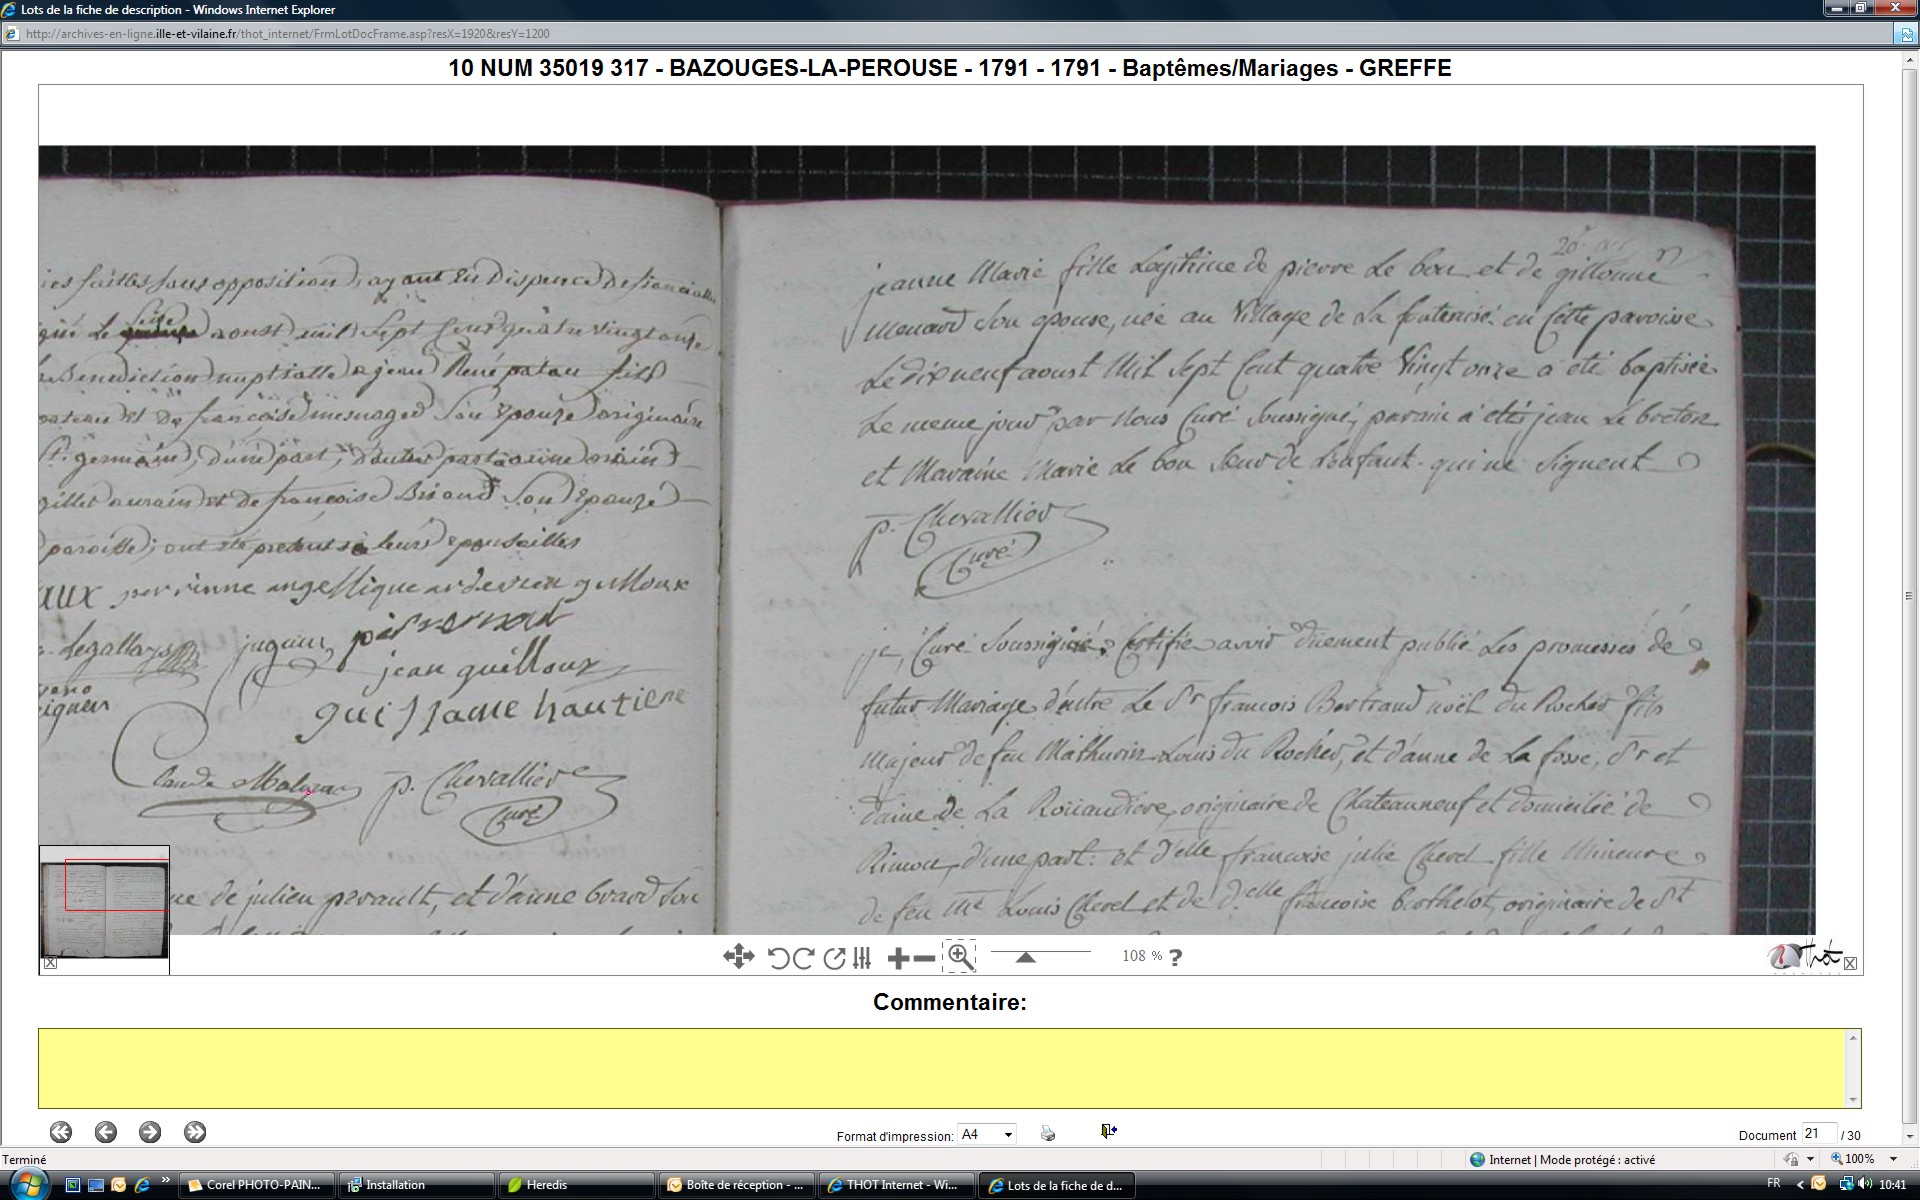 Lots de la fiche de description - Windows Internet Explorer
http://archives-en-ligne.ille-et-vilaine.fr/thot_internet/FrmLotDocFrame.asp?resX=1920&resY=1200
10 NUM 35019 317 - BAZOUGES-LA-PEROUSE - 1791 - 1791 - Baptêmes/Mariages - GREFFE
faittes sans opposition, ayant eu dispence de
le seize aoust mil sept cent quatre vingt onze
Benediction nuptialle a jean René patau fils
et de françoise mesnager son epouze originaire
St. germain, d'une part, d'autre part
gilles et de françoise son epouze
paroisse; ont été présents a leurs epousailles
aux perrinne angellique
Legallays jugaux
jean guilloux
guillaume hautiere
Claude
p. Chevallier
Curé
de julien perault, et d'anne son
20e
jeanne Marie fille Legitime de pierre Le bon et de gillonne
Menard son epouse, née au Village de La en cette paroisse
Le dix neuf aoust Mil Sept Cent quatre Vingt onze a été baptisée
Le meme jour par Nous Curé Soussigné, parain a été jean Le breton
et Maraine Marie Le bon Soeur de L'enfant. qui ne Signent
p. Chevallier
Curé
je, Curé Soussigné, Certifie avoir duement publié Les promesses de
futur Mariage d'entre Le Sr françois Bertrand noël du Rocher fils
Majeur de feu Mathurin Louis du Rocher, et d'anne de La fosse, Sr et
dame de La Roüaudiere, originaire de Chateauneuf et domicilié de
Rimou, d'une part: et d'elle françoise julie Chevel fille Mineure
de feu Me Louis Chevel et de d.elle françoise berthelot, originaire de St
108 %
?
Thot
Commentaire:
Format d'impression: A4
Document 21 / 30
Terminé
Internet | Mode protégé : activé
100%
Corel PHOTO-PAIN...
Installation
Heredis
Boîte de réception - ...
THOT Internet - Wi...
Lots de la fiche de d...
FR
10:41